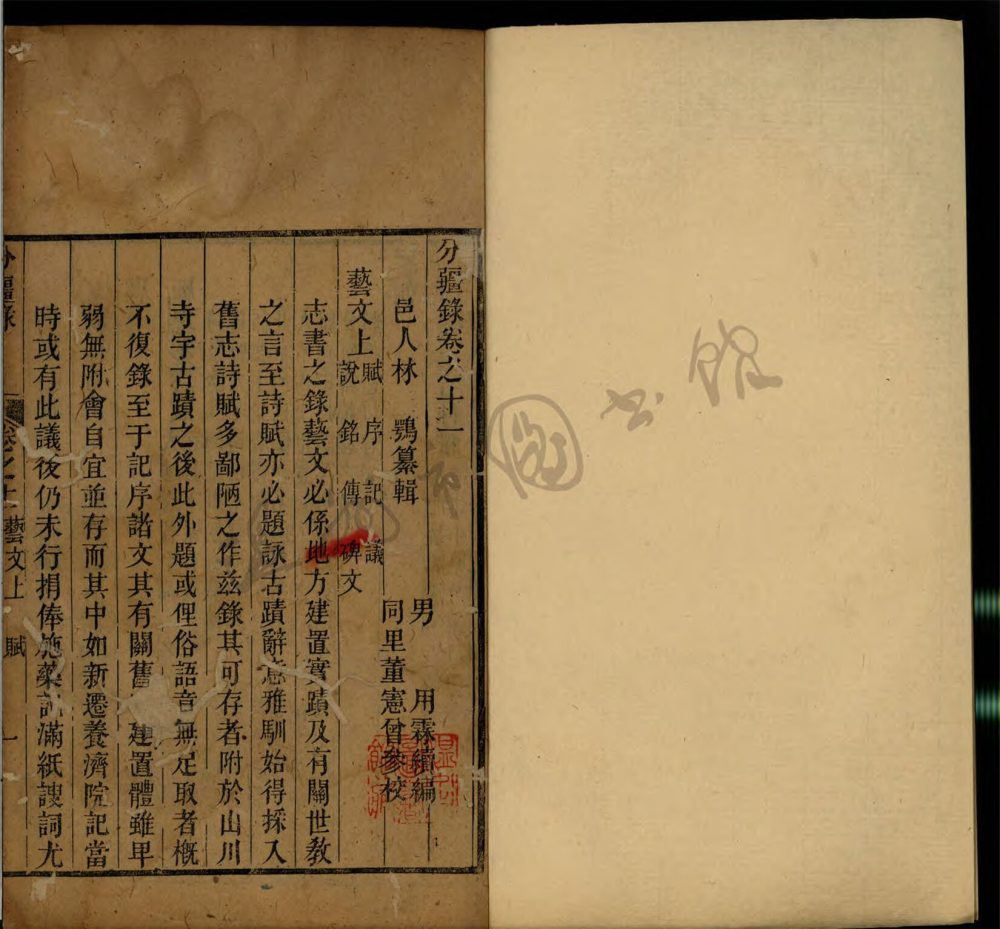 分疆錄卷之十一
邑人林 鶚纂輯 男 用霖續編
同里董憲曾參校
藝文上 賦 序 記 議
說 銘 傳 碑文
志書之錄藝文必係地方建置實蹟及有關世教
之言至詩賦亦必題詠古蹟辭意雅馴始得採入
舊志詩賦多鄙陋之作茲錄其可存者附於山川
寺宇古蹟之後此外題或俚俗語音無足取者槪
不復錄至于記序諸文其有關舊 建置體雖卑
弱無附會自宜並存而其中如新遷養濟院記當
時或有此議後仍未行捐俸施藥 滿紙諛詞尤
分疆錄 卷之十一 藝文上 賦 一
圖書館